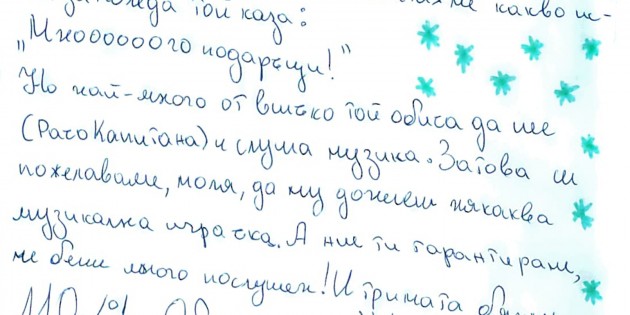 той каза: какво ис-
„Мноооооого подаръци!"
Но най-много от всичко той обича да пее
(Рачо Капитана) и слуша музика. Затова ти
пожелаваме, моля, да му донесеш някаква
музикална играчка. А ние ти гарантираме,
че беше много послушен! И тримата